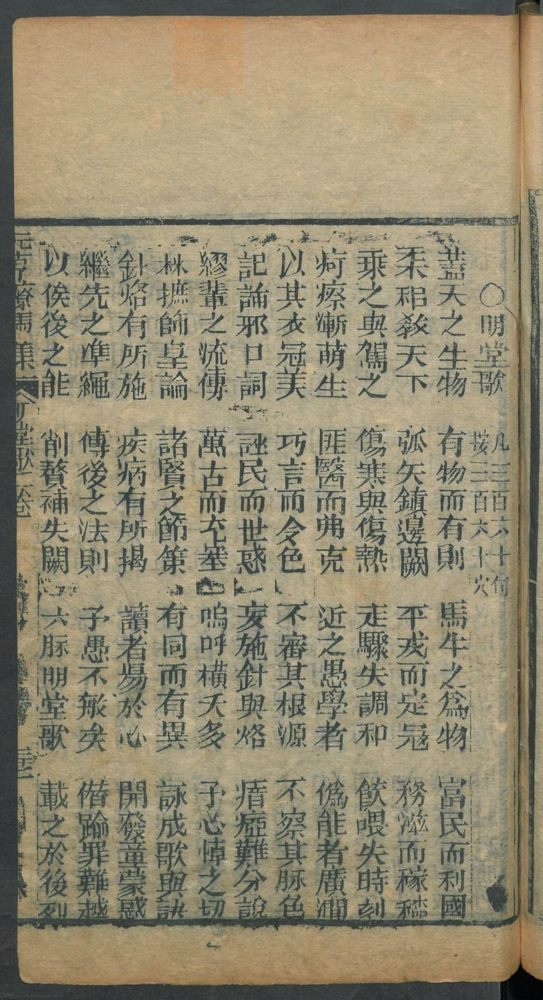 ○明堂歌 凡三百六十句 按三百六十穴
蓋天之生物 有物而有則 馬牛之爲物 富民而利國
耒耜敎天下 弧矢鎮邊闕 平戎而定冦 務滋而稼穡
乘之與駕之 傷寒與傷熱 走驟失調和 飲喂失時刻
疴瘵漸萌生 匪醫而弗克 近之愚學者 偽能者廣濶
以其衣冠美 巧言而令色 不審其根源 不察其脉色
記誦邪口詞 誣民而世惑 妄施針與烙 瘖瘂難分說
繆輩之流傳 萬古而充塞 嗚呼橫夭多 予心悼之切
採摭師皇論 諸賢之節策 有同而有異 詠成歌與訣
針烙有所施 疾病有所揭 讀者惕於心 開發童蒙惑
繼先之凖繩 傳後之法則 予愚不敏矣 僭踰罪難越
以俟後之能 削贅補失闕 六脉明堂歌 載之於後列
元亨療馬集 明堂歌 卷